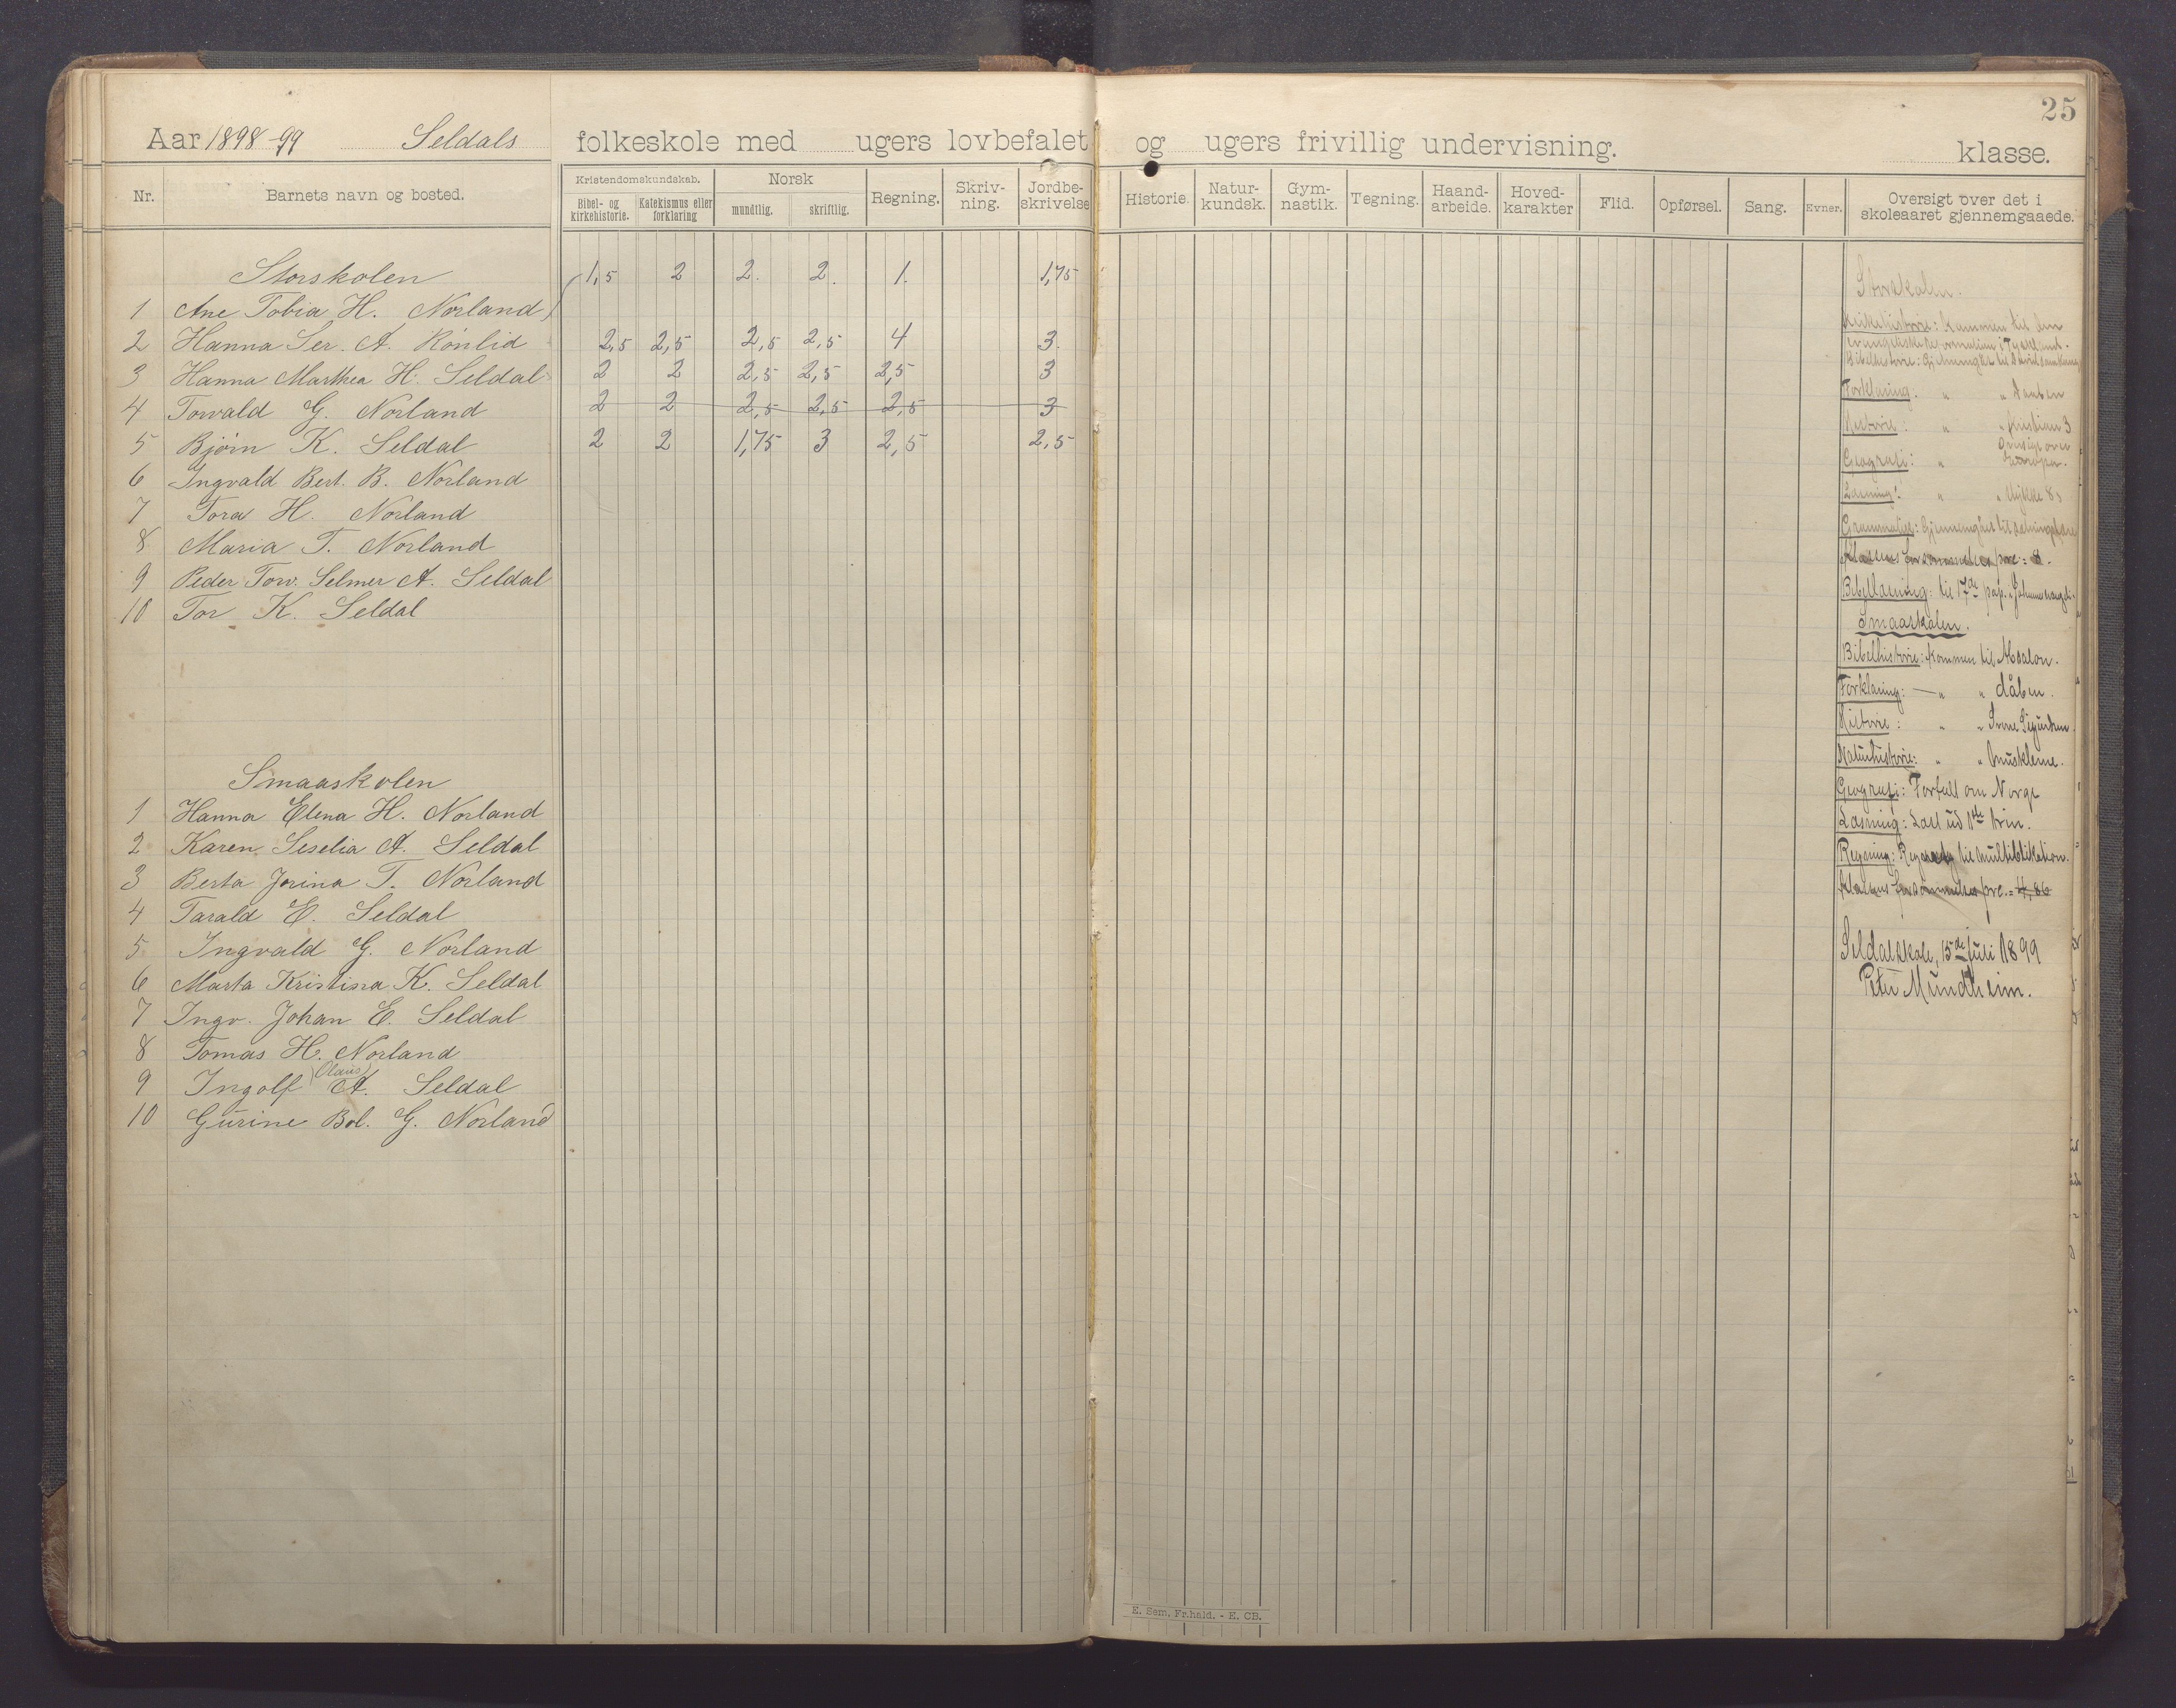 25
Aar 1898-99 Seldals folkeskole med ugers lovbefalet og ugers frivillig undervisning. klasse.
Nr. Barnets navn og bosted. Kristendomskundskab. Bibel- og kirkehistorie. Katekismus eller forklaring Norsk mundtlig. skriftlig. Regning. Skriv-ning. Jordbe-skrivelse Historie. Natur-kundsk. Gym-nastik. Tegning. Haand-arbeide. Hoved-karakter Flid. Opførsel. Sang. Evner. Oversigt over det i skoleaaret gjennemgaaede.
Storskolen 1,5 2 2. 2. 1. 1,75
1 Ane Tobia H. Norland
2 Hanna Ser. A. Rønlid 2,5 2,5 2,5 2,5 4 3.
3 Hanna Marthea H. Seldal 2 2 2,5 2,5 2,5 3
4 Torvald G. Norland 2 2 2,5 2,5 2,5 3
5 Bjørn K. Seldal 2 2 1,75 3 2,5 2,5
6 Ingvald Bert. B. Norland
7 Tora H. Norland
8 Maria T. Norland
9 Peder Torv. Selmer A. Seldal
10 Tor K. Seldal
Smaaskolen
1 Hanna Elena H. Norland
2 Karen Seselia A. Seldal
3 Berta Jorina T. Norland
4 Tarald E. Seldal
5 Ingvald G. Norland
6 Marta Kristina K. Seldal
7 Ingv. Johan E. Seldal
8 Tomas H. Norland
9 Ingolf (Olaus) A. Seldal
10 Gurine Bol. G. Norland
Storskolen.
Kirkehistorie: Kommen til den
Forklaring: " " Daaben
Historie: " " Kristian 3
Geografi: " Oversigt over Europa.
Læsning: " " Stykke 83
Grammatik: Gjennemgået til
Klassens forsømmelsespro.: 8.
Bibellæsning: til 17de kap. i
Smaaskolen.
Bibelhistorie: Kommen til Absalon.
Forklaring: — " " dåben.
Historie: " "
Naturhistorie: " " Musklerne.
Geografi: Fortalt om Norge
Læsning: Læst ud 1ste trin.
Regning: til multiplikation.
Klassens forsømmelsespro. = 4,86
Seldal skole, 15de juli 1899
Peter Mundheim.
E. Sem, Fr.hald. - E. CB.